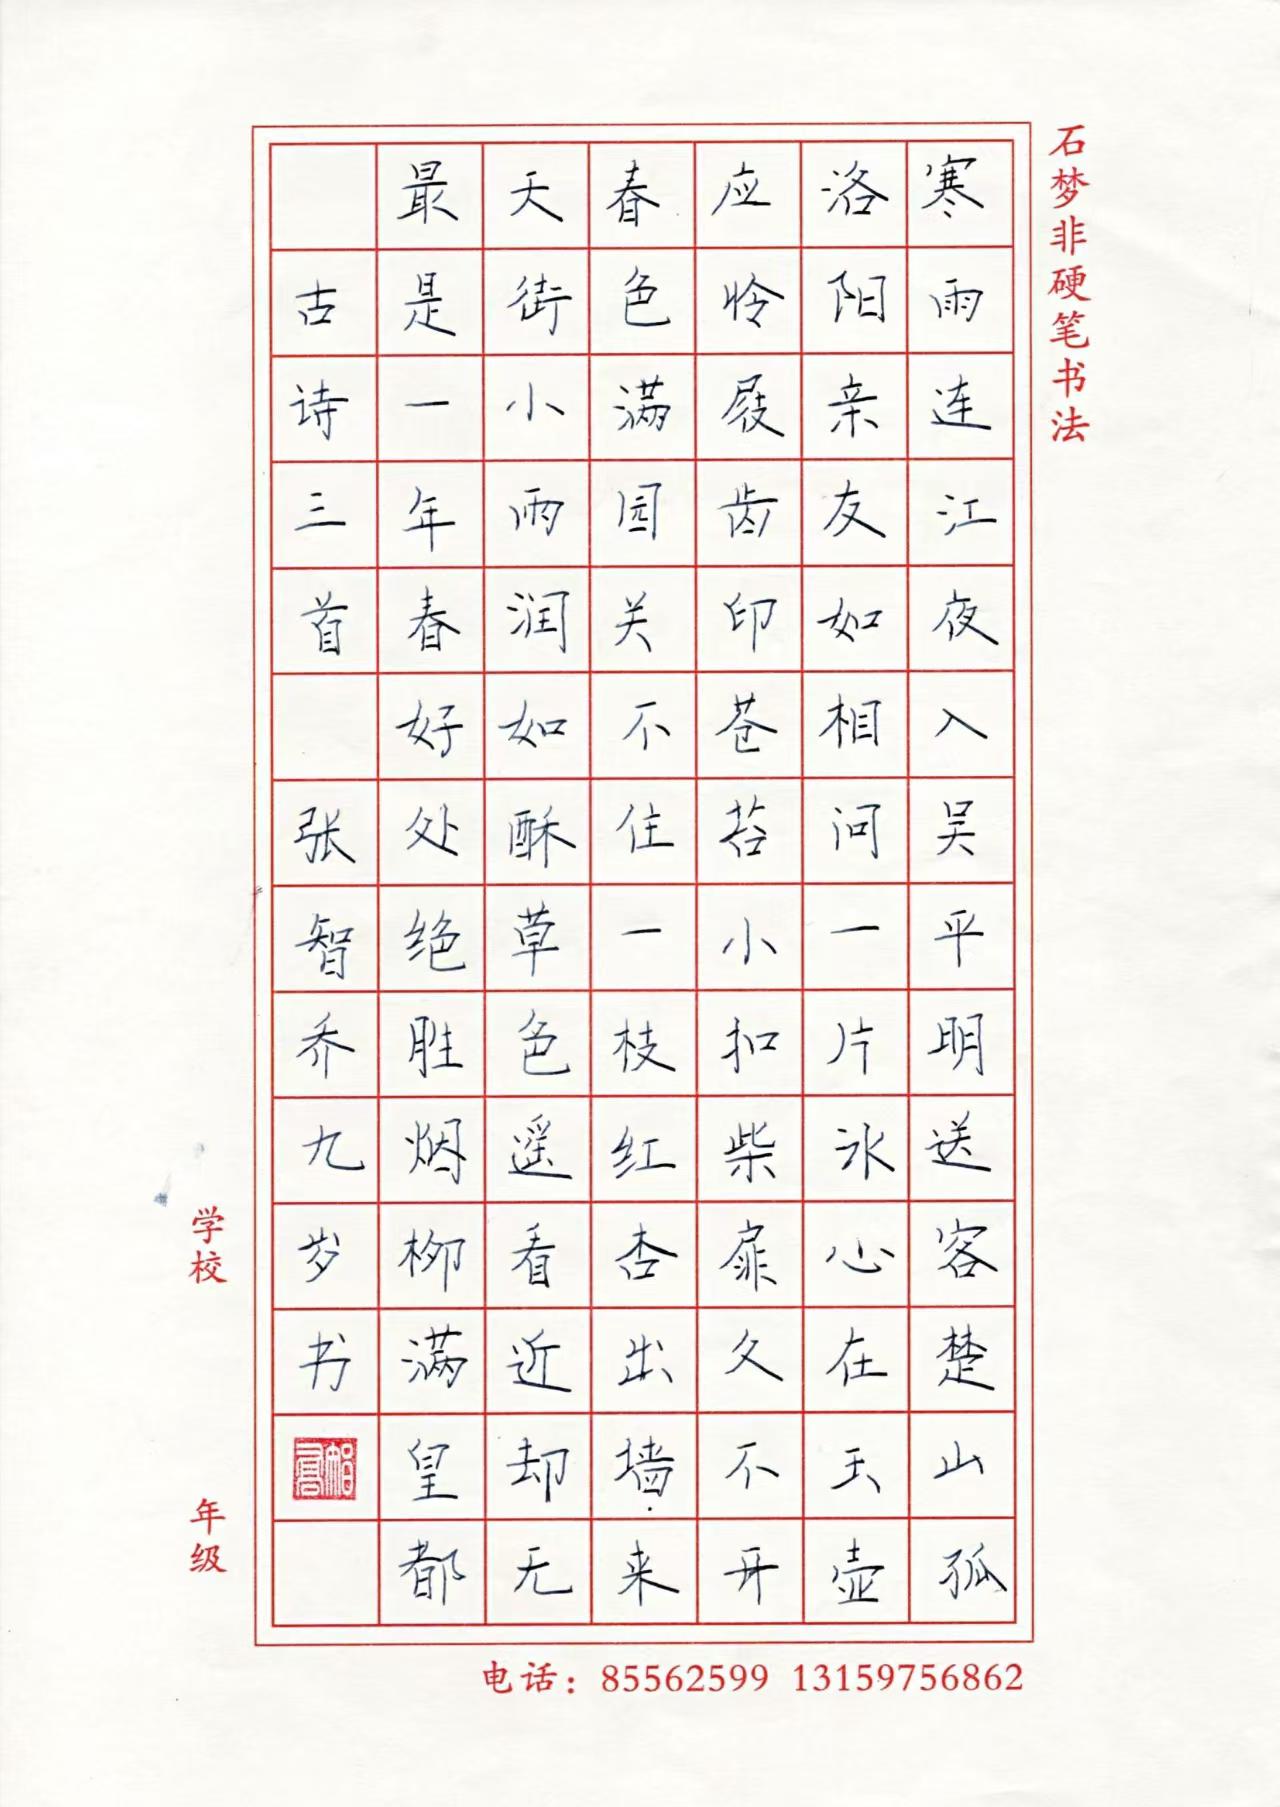 石梦非硬笔书法
寒雨连江夜入吴平明送客楚山孤
洛阳亲友如相问一片冰心在玉壶
应怜屐齿印苍苔小扣柴扉久不开
春色满园关不住一枝红杏出墙来
天街小雨润如酥草色遥看近却无
最是一年春好处绝胜烟柳满皇都
古诗三首 张智乔九岁书
学校 年级
电话：85562599 13159756862